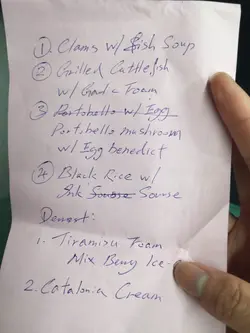 ① Clams w/ fish Soup
② Grilled Cuttlefish
w/ Garlic Foam
3 Portobello w/ Egg
Portobello mushroom
w/ Egg benedict
④ Black Rice w/
Ink Souse Souse
Dessert:
1. Tiramisu Foam
Mix Berry Ice-
2. Catalonia Cream